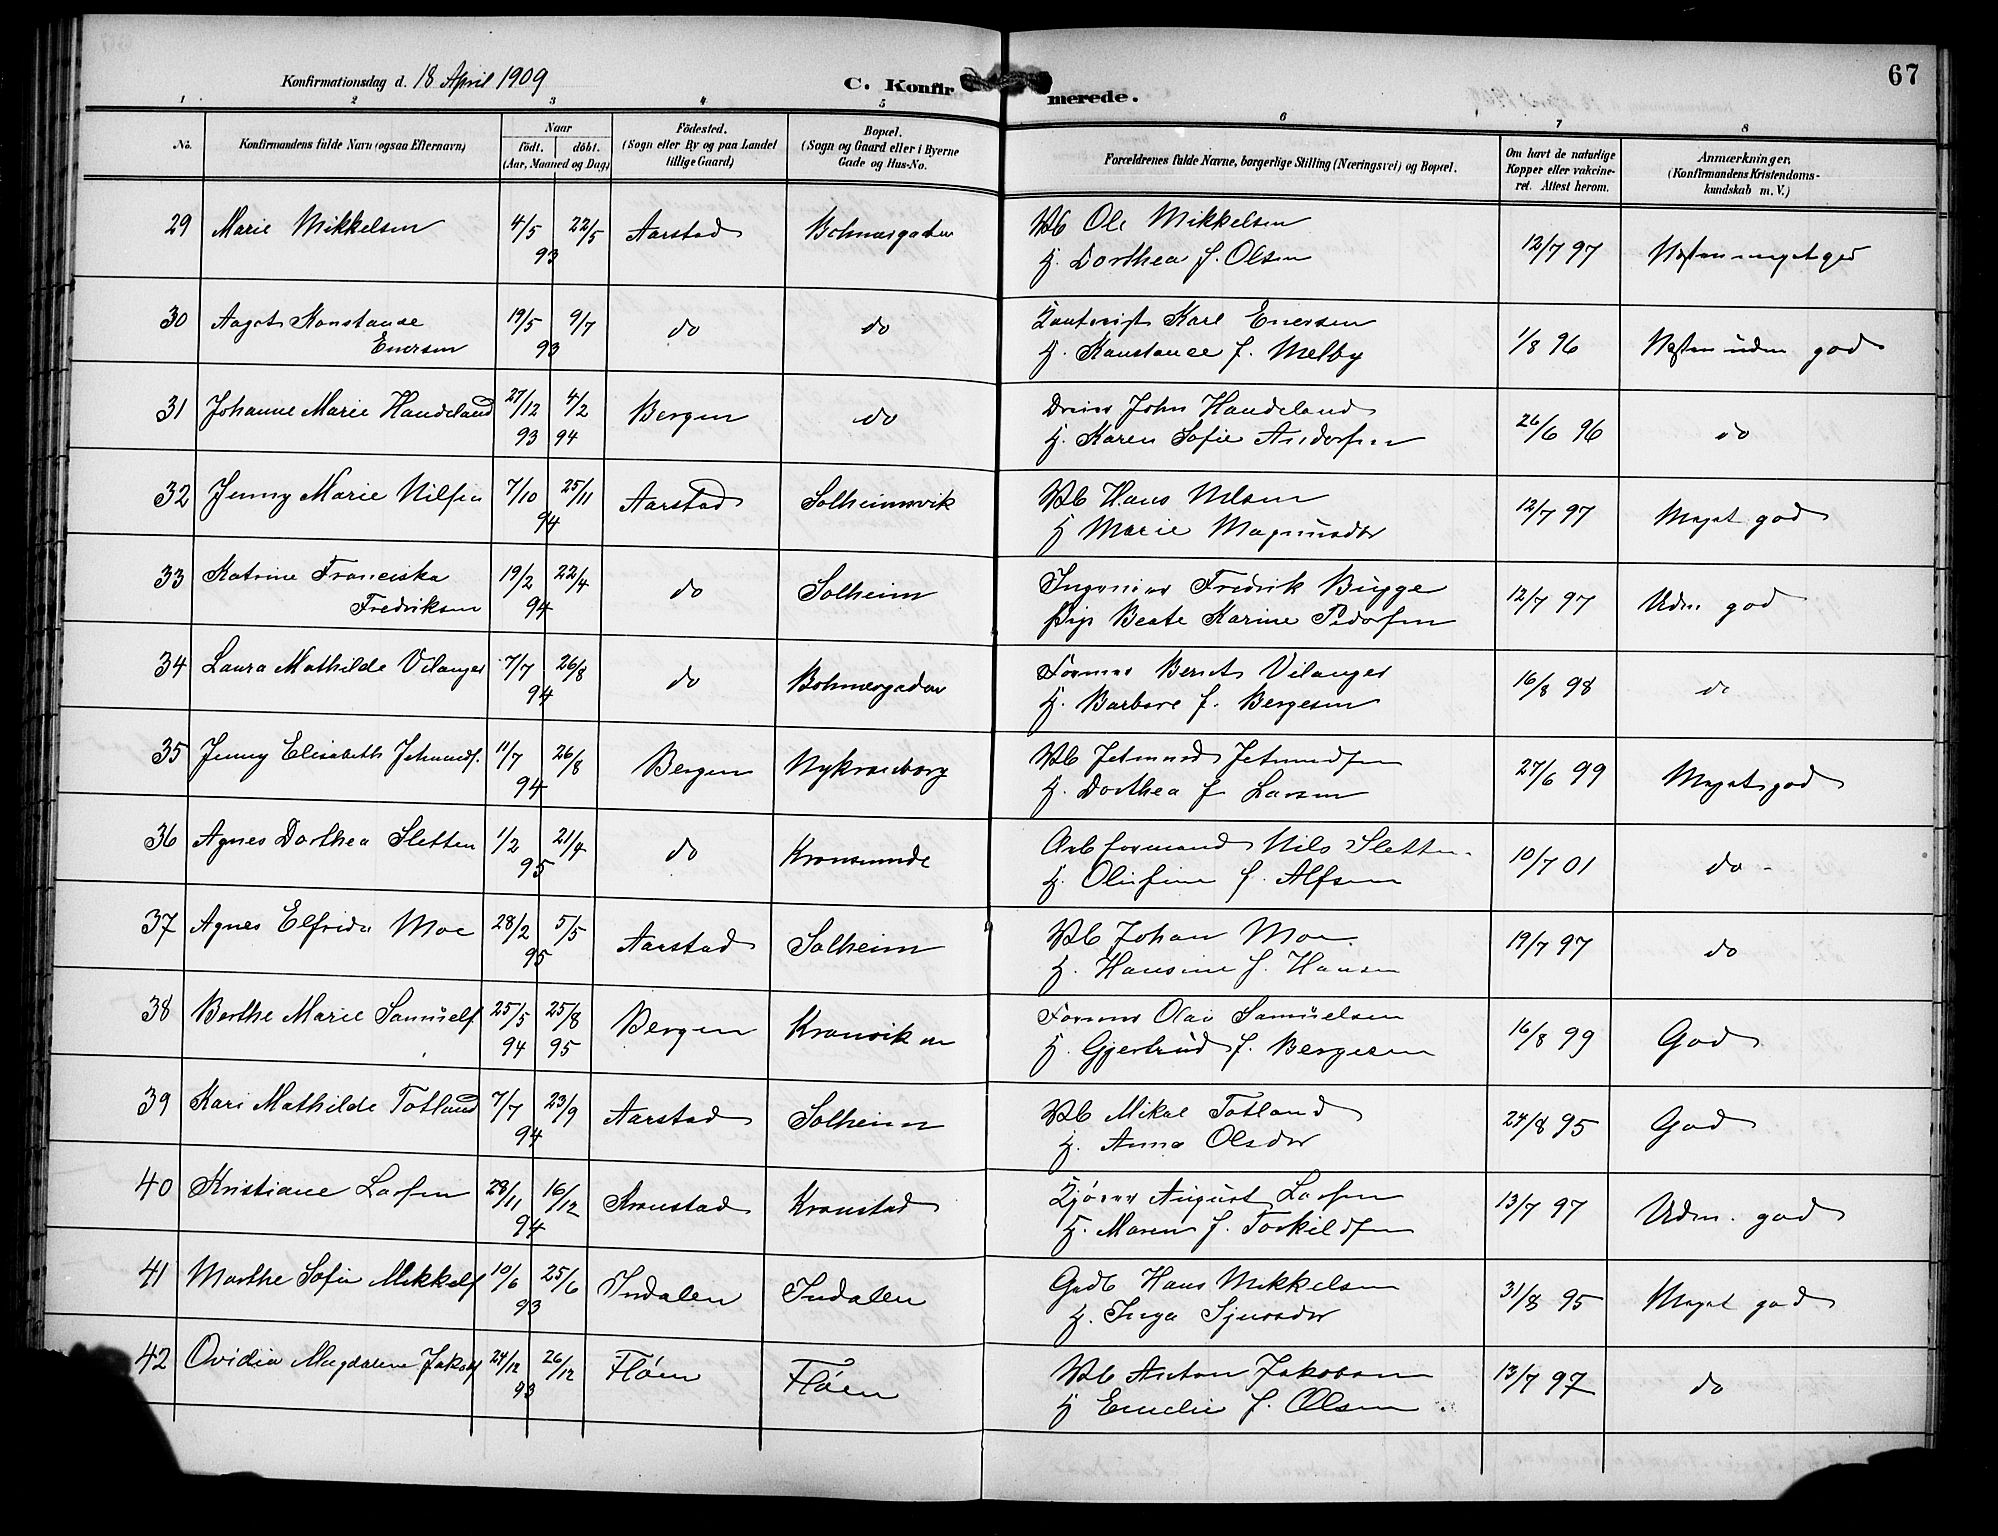 67
Konfirmationsdag d. 18 April 1909
C. Konfirmerede.
1 2 3 4 5 6 7 8
No.
Konfirmandens fulde Navn (ogsaa Efternavn)
Naar
födt. döbt.
(Aar, Maaned og Dag)
Födested.
(Sogn eller By og paa Landet
tillige Gaard)
Bopæl.
(Sogn og Gaard eller i Byerne
Gade og Hus-No.
Forældrenes fulde Navne, borgerlige Stilling (Næringsvei) og Bopæl.
Om havt de naturlige
Kopper eller vakcine-
ret. Attest herom.
Anmærkninger.
(Konfirmandens Kristendoms-
kundskab m. V.)
29 Marie Mikkelsen 4/5 22/5 Aarstad Bohmergaden Ole Mikkelsen 12/7 97
93 H. Dorthea f. Olsen
30 Aagot Konstanse 19/5 9/7 do do Karl Enersen 1/8 96 Næsten uden god
Enersen 93 H. Konstance f. Melby
31 Johanne Marie Haudeland 27/12 4/2 Bergen do John Haudeland 26/6 96 do
93 94 H. Karen Sofie
32 Jenny Marie Nilsen 7/10 25/11 Aarstad Solheimsvik Hans Nilsen 12/7 97 Meget god
94 H Marie Magnusdtr
33 Katrine Franciska 19/2 22/4 do Solheim Ingeniør Fredrik Bugge 12/7 97 Udm. god
Fredriksen 94 Pige Beate Karine Pedersen
34 Laura Mathilde Vilanger 7/7 26/8 do Bohmergaden Former Bernt Vilanger 16/8 98 do
94 H. Barbare f. Bergesen
35 Jenny Elisabeth Jetmunds. 11/7 26/8 Bergen Nykronborg Jetmund Jetmundsen 27/6 99 Meget god
94 H. Dorthea f Larsen
36 Agnes Dorthea Sletten 1/2 21/4 do Kronsminde Arb formand Nils Sletten 10/7 01 do
95 H. Olufine f. Alfsen
37 Agnes Elfrida Moe 28/2 5/5 Aarstad Solheim Johan Moe 19/7 97 do
95 H. Hansine f. Hansen
38 Berthe Marie Samuels 25/5 25/8 Bergen Kronviken Former Olai Samuelsen 16/8 99 God
94 95 H. Gjertrud f. Bergesen
39 Kari Mathilde Totland 7/7 23/9 Aarstad Solheim Mikal Totland 24/8 95 God
94 H. Anna Olsdtr
40 Kristiane Larsen 28/11 16/12 Kronstad Kronstad Kjører August Larsen 13/7 97 Udm. god
94 H. Maren f. Torkildsen
41 Marthe Sofie Mikkels 10/6 25/6 Indalen Indalen Gadb Hans Mikkelsen 31/8 95 Meget god
93 H. Inga Sjursdtr
42 Ovidia Magdalene Jakobs 24/12 26/12 Fløen Fløen Anton Jakobsen 13/7 97 do
93 H Emelie f. Olsen